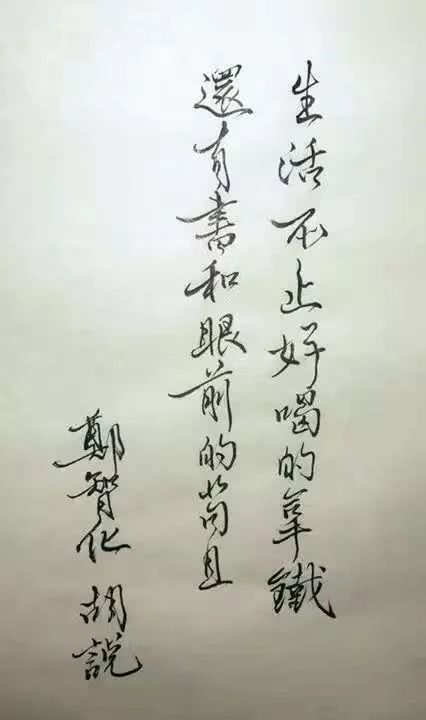 生活不止好喝的拿鐵
還有書和眼前的苟且
鄭智化 胡說